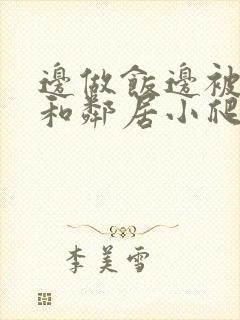 邊做飯邊被
和鄰居小爬
李美雪